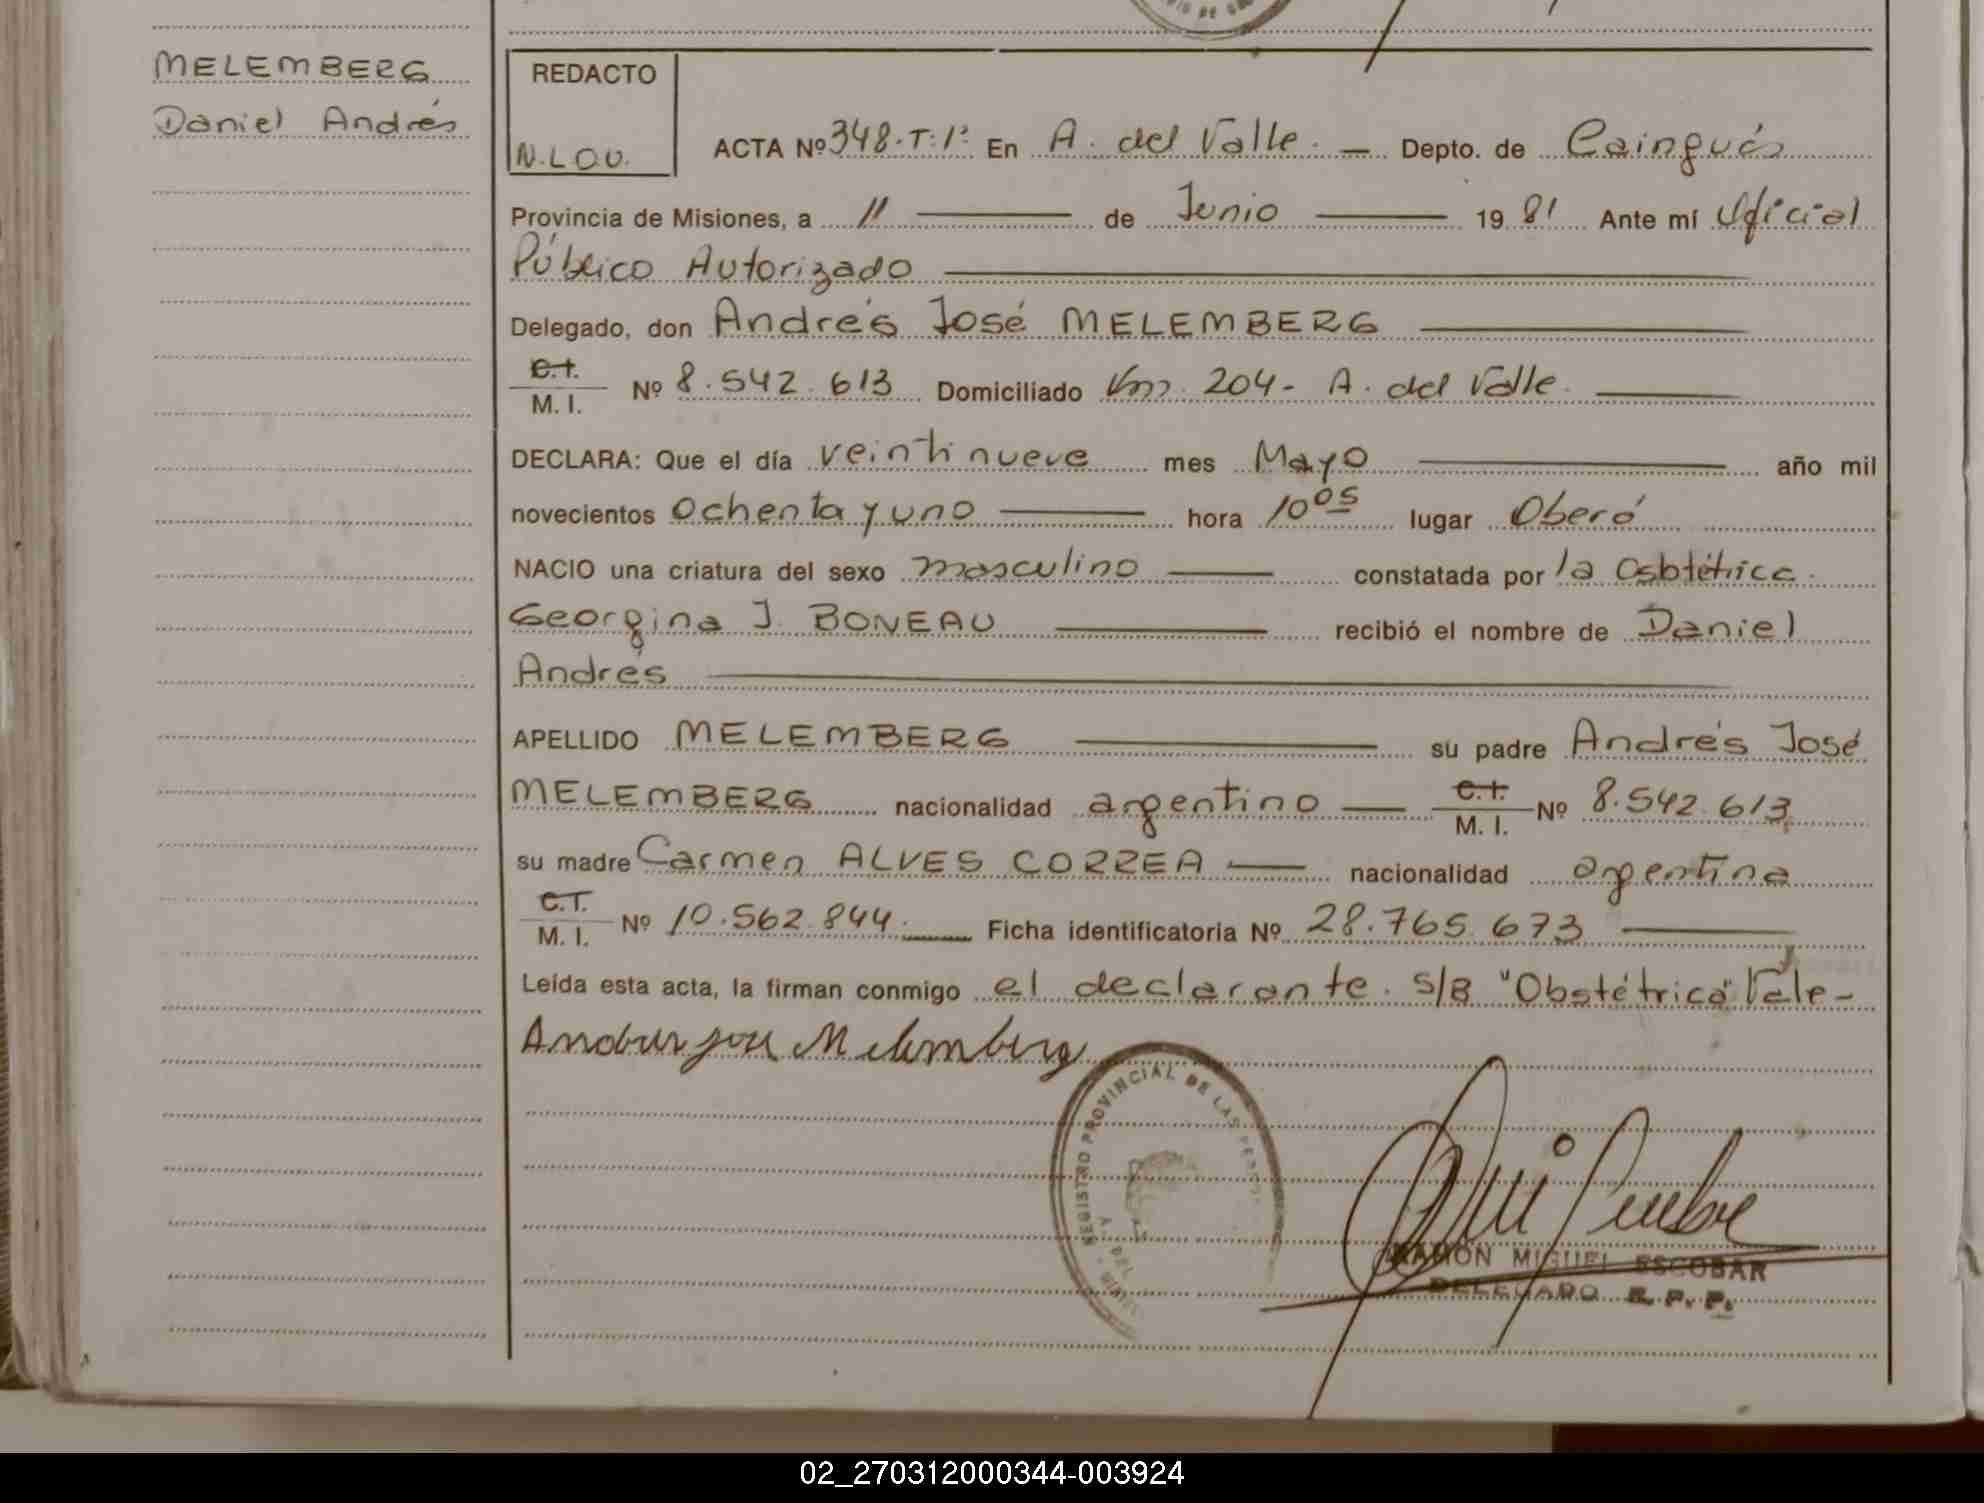 MELEMBERG
Daniel Andrés
REDACTO
N.L.O.U.
ACTA Nº 348.T:1º En A. del Valle. — Depto. de Cainguás
Provincia de Misiones, a 11 — de Junio — 1981 Ante mí Oficial
Público Autorizado
Delegado, don Andrés José MELEMBERG
C.I. M. I. Nº 8.542.613 Domiciliado Km. 204- A. del Valle.
DECLARA: Que el día veintinueve mes Mayo — año mil
novecientos ochenta y uno — hora 10 05 lugar Oberá
NACIO una criatura del sexo masculino — constatada por la Osbtétrica.
Georgina J. BONEAU — recibió el nombre de Daniel
Andrés
APELLIDO MELEMBERG — su padre Andrés José
MELEMBERG nacionalidad argentino — C.I. M. I. Nº 8.542.613
su madre Carmen ALVES CORREA — nacionalidad argentina
C.I. M. I. Nº 10.562.844. — Ficha identificatoria Nº 28.765.673
Leída esta acta, la firman conmigo el declarante. S/B "Obstétrica" Vale-
Andres jose Melemberg
REGISTRO PROVINCIAL DE LAS
A. DEL
RAMON MIGUEL ESCOBAR
DELEGADO R. P. P.
02_270312000344-003924